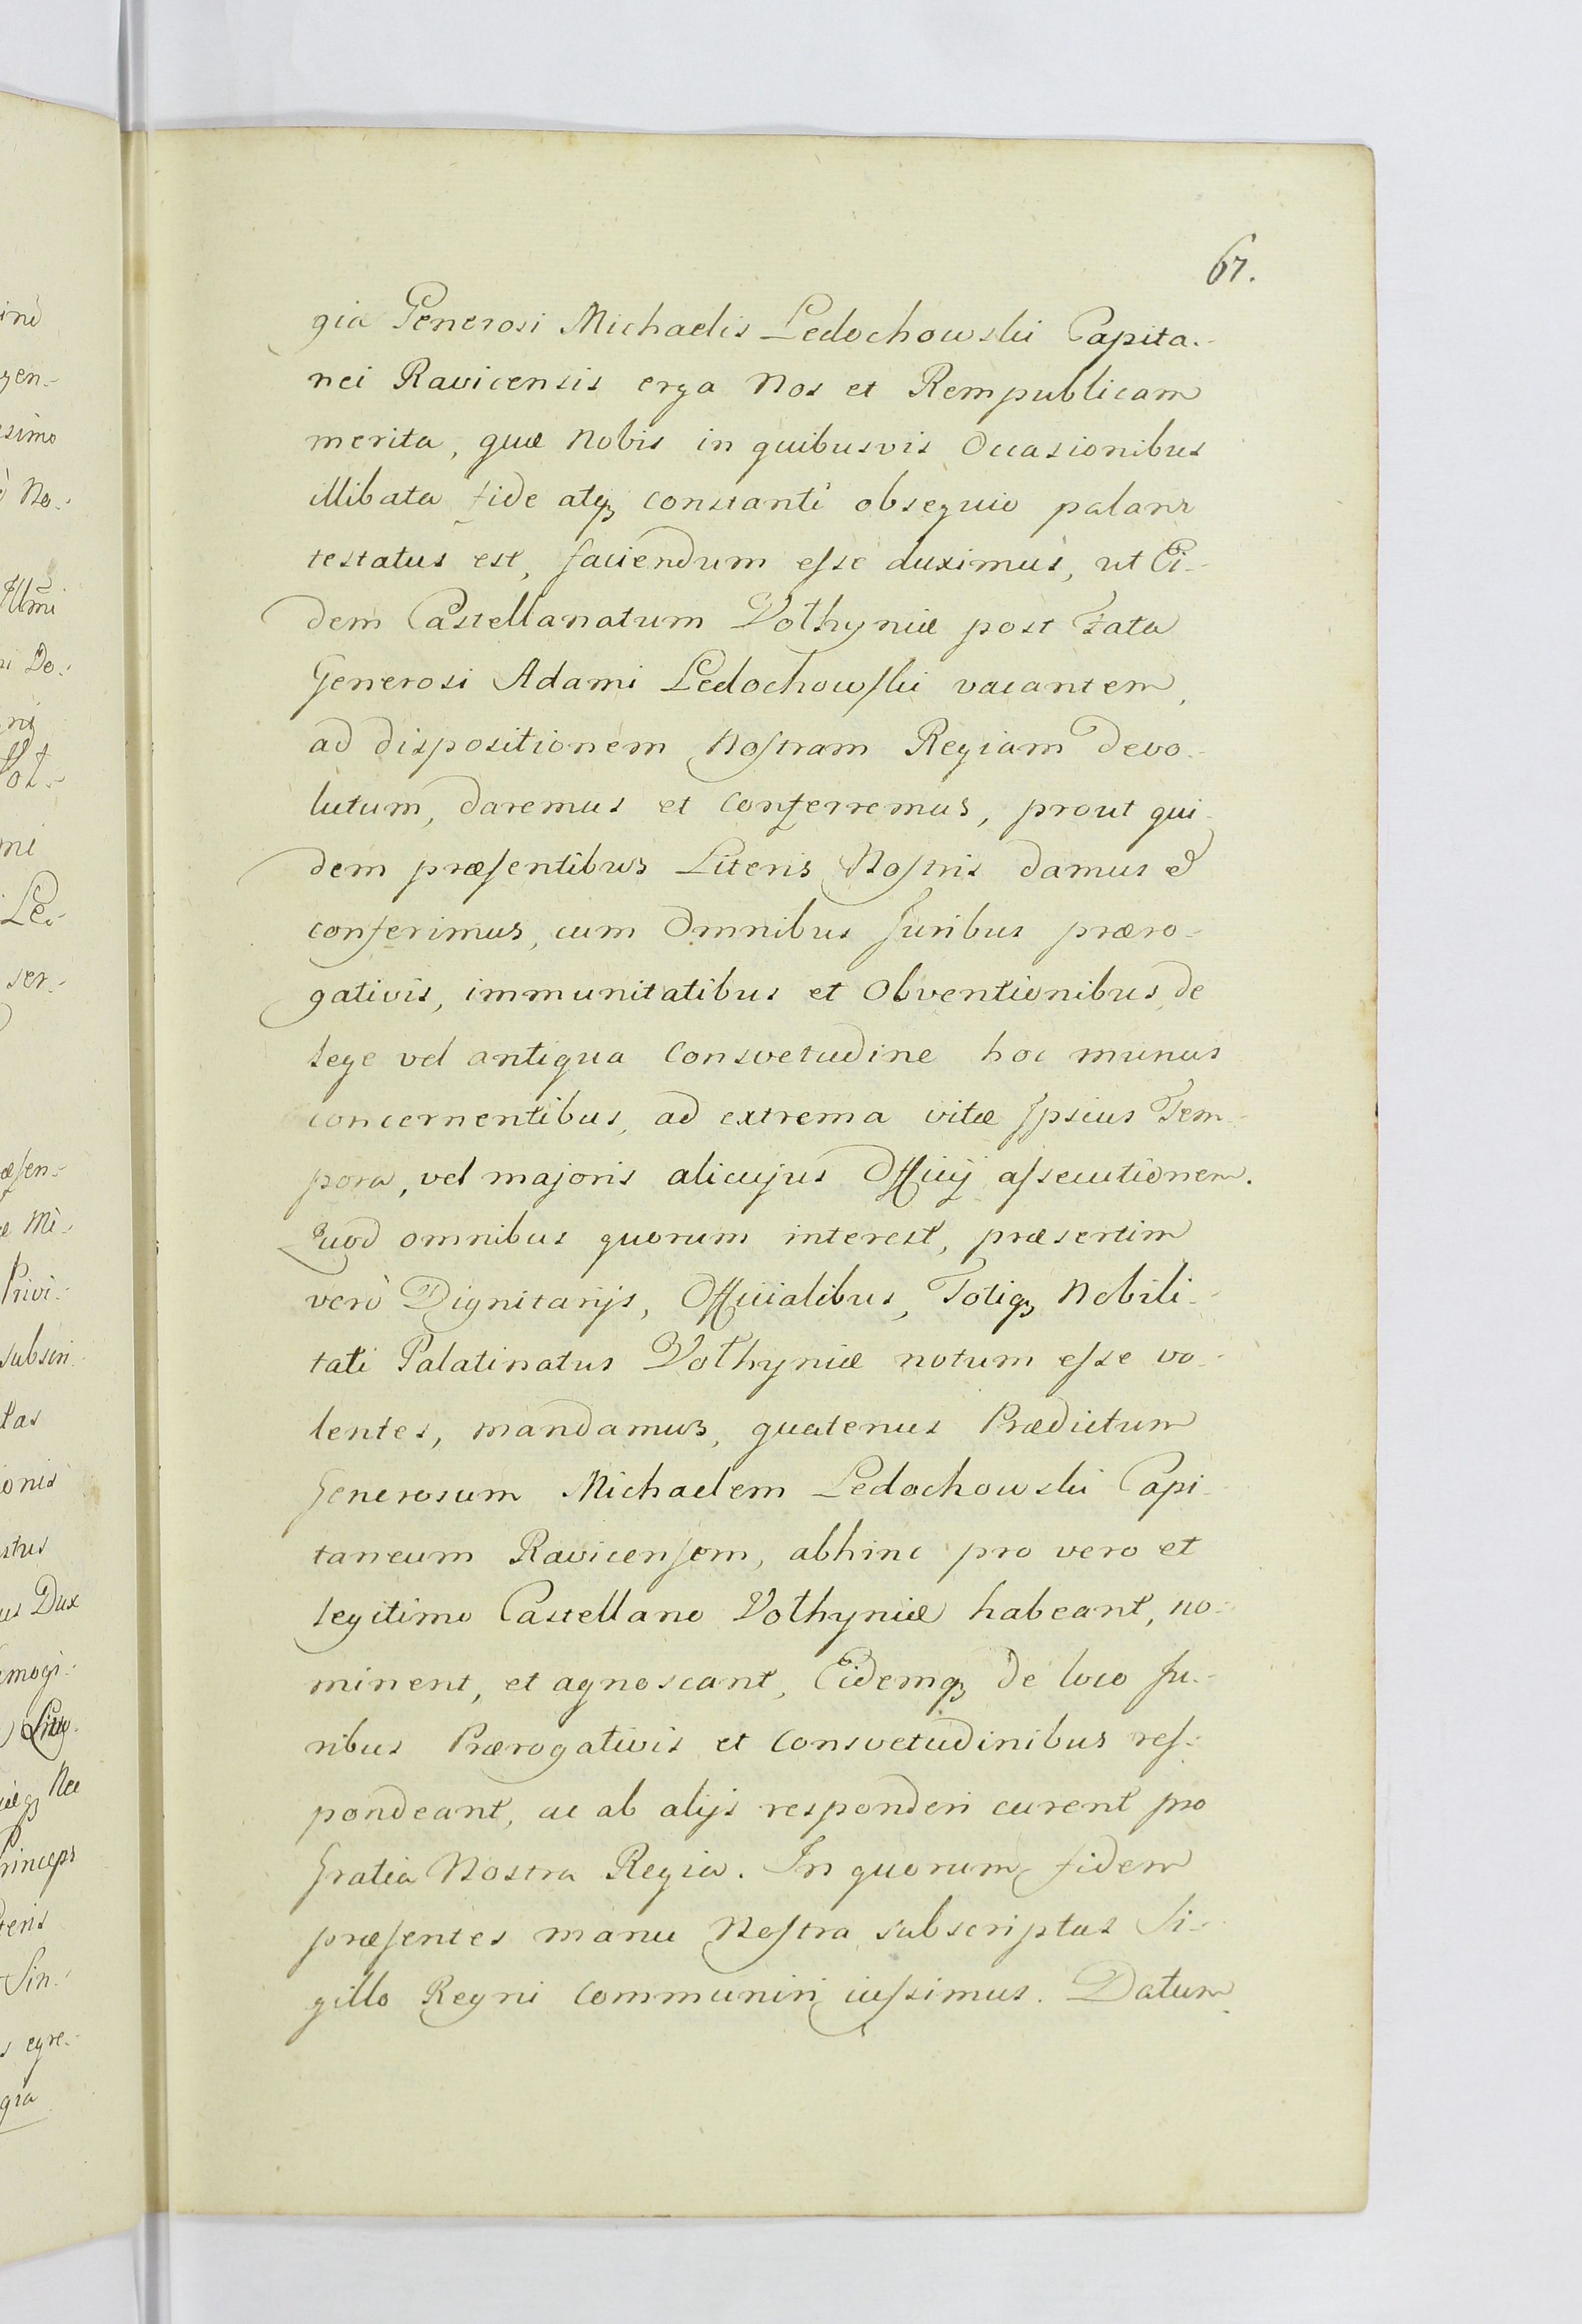 67.
gia Generosi Michaelis Ledochowski Capita-
nei Ravicensis erga Nos et Rempublicam
merita, quæ Nobis in quibusvis Occasionibus
illibata fide atq3 constanti obsequio palam
testatus est, faciendum eſse duximus, ut Ei-
dem Castellanatum Vołhyniæ post Fata
Generosi Adami Ledochowſki vacantem,
ad dispositionem Noſtram Regiam devo-
lutum, daremus et conferremus, prout qui-
dem præſentibus Literis Noſtris damus et
conferimus, cum Omnibus Juribus præro-
gativis, immunitatibus et Obventionibus, de
lege vel antiqua Consvetudine hoc munus
concernentibus, ad extrema vitæ Ipsius Tem-
pora, vel majoris alicujus Officij aſsecutionem.
Quod omnibus quorum interest, præsertim
verò Dignitarijs, Officialibus, Totiq3 Nobili-
tati Palatinatus Vołhyniæ notum eſse vo-
lentes, mandamus, quatenus Prædictum
Generosum Michaelem Ledochowski Capi-
taneum Ravicenſem, abhinc pro vero et
legitimo Castellano Vołhyniæ habeant, no-
minent, et agnoscant, Eidemq3 de loco Ju-
ribus Prærogativis et Consvetudinibus reſ-
pondeant, ac ab alijs responderi curent pro
Gratia Nostra Regia. In quorum fidem
præſentes manu Noſtra subscriptas Si-
gillo Regni Communiri iuſsimus. Datum
ni Do.
Le-
ser-
æſen-
Privi-
onis
us Dux
rinceps
Sin-
s egre-
gia